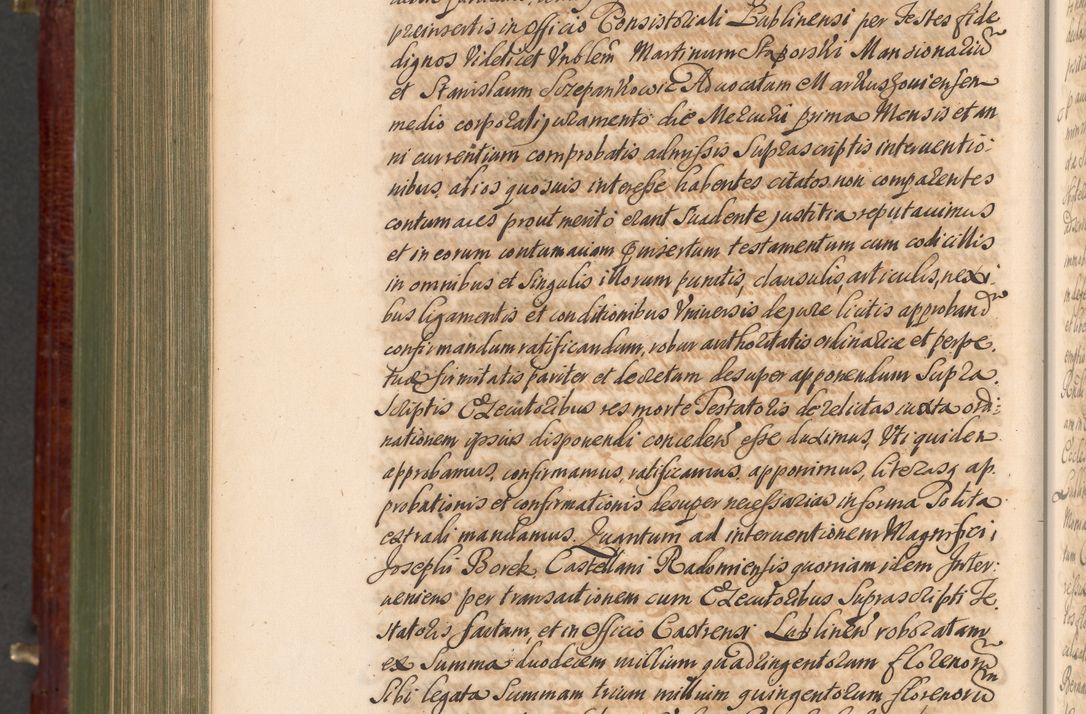 preinsertis in Officio Consistoriali Lublinensi per Testes fide
dignos Videlicet Vnblem Martinum Staporski Mansionariu
et Stanislaum Sczepankowic Advocatum Markuszouiensem
medio corporali juramento die Mercurii prima Mensis et an
ni currentium comprobatis admissis Suprascriptis interuentio:
nibus, alios quosuis interesse habentes citatos non comparentes
contumaces prout merito erant Suadente justitia reputauimus
et in eorum contumaciam insertum testamentum cum codicillis
in omnibus et Singulis illorum punctis, clausulis, articulis, nexi:
bus ligamentis et conditionibus Vniuersis de jure licitis approband
confirmandum ratificandum, robur authoritatis ordinariæ et perpe,
tuæ firmitatis pariter et decretum desuper apponendum Supra.
Scriptis Executoribus res morte Testatoris derelictas iuxta ordi:
nationem ipsius disponendi conceden esse duximus, Vti quidem
approbamus, confirmamus, ratificamus, apponimus, literasq ap
probationis et confirmationis desuper necessarias in forma Polita
extradi mandamus. Quantum ad interuentionem Magnifici
Josephi Borek, Castellani Radomiensis quoniam idem Inter:
ueniens per transactionem cum Executoribus Suprascripti Te,
statoris factam, et in Officio Castrensi Lublinen roboratam
ex Summa duodecem millium quadringentorum florenor
Sibi legata Summam trium millium quingentorum florenoru